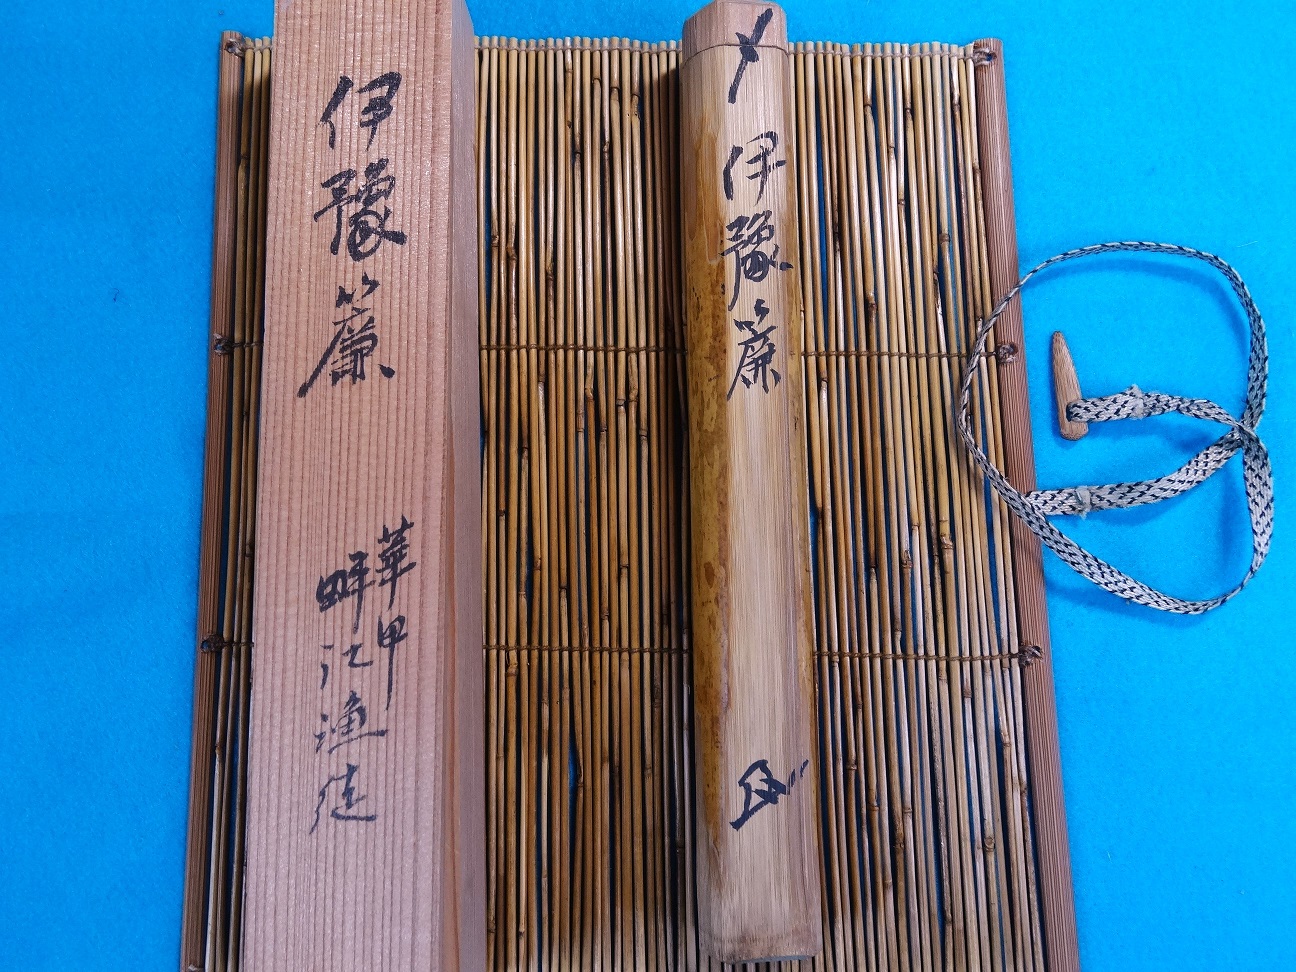 伊豫簾
華甲
畔江漁徒
伊豫簾